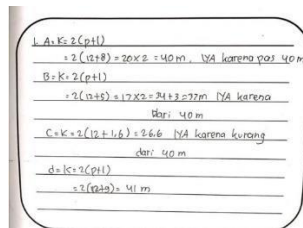 1. A = K = 2(p+l)
= 2(12+8) = 20 x 2 = 40 m, IYA karena pas 40 m
B = K = 2(p+l)
= 2(12+5) = 17 x 2 = 34 + 3 = 37 m IYA karena
dari 40 m
C = K = 2(12 + 1,6) = 26,6 IYA karena kurang
dari 40 m
d = K = 2(p+l)
= 2(12+9) = 41 m